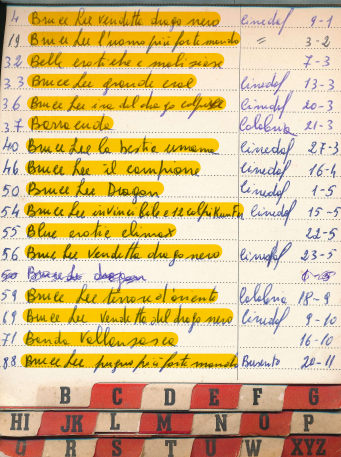 4 Bruce Lee vendetta drago nero Cinedaf 9-1
19 Bruce Lee l'uomo più forte mondo " 3-2
32 Belle erotiche e maliziose 7-3
33 Bruce Lee grande eroe Cinedaf 13-3
36 Bruce Lee ira del drago colpisce Cinedaf 20-3
37 Barracuda Calabria 21-3
40 Bruce Lee la bestia umana Cinedaf 27-3
46 Bruce Lee il campione Cinedaf 16-4
50 Bruce Lee Dragon Cinedaf 1-5
54 Bruce Lee invincibile e 12 colpi Kun Fu Cinedaf 15-5
55 Blue erotic climax 22-5
56 Bruce Lee vendetta drago nero Cinedaf 23-5
50 Bruce Lee dragon
59 Bruce Lee terrore d'oriente Calabria 18-9
69 Bruce Lee vendetta del drago nero Cinedaf 9-10
71 Banda Vallanzasca 16-10
88 Bruce Lee pugno più forte mondo Busento 20-11
B C D E F G
HI JK L M N O P
Q R S T U W XYZ